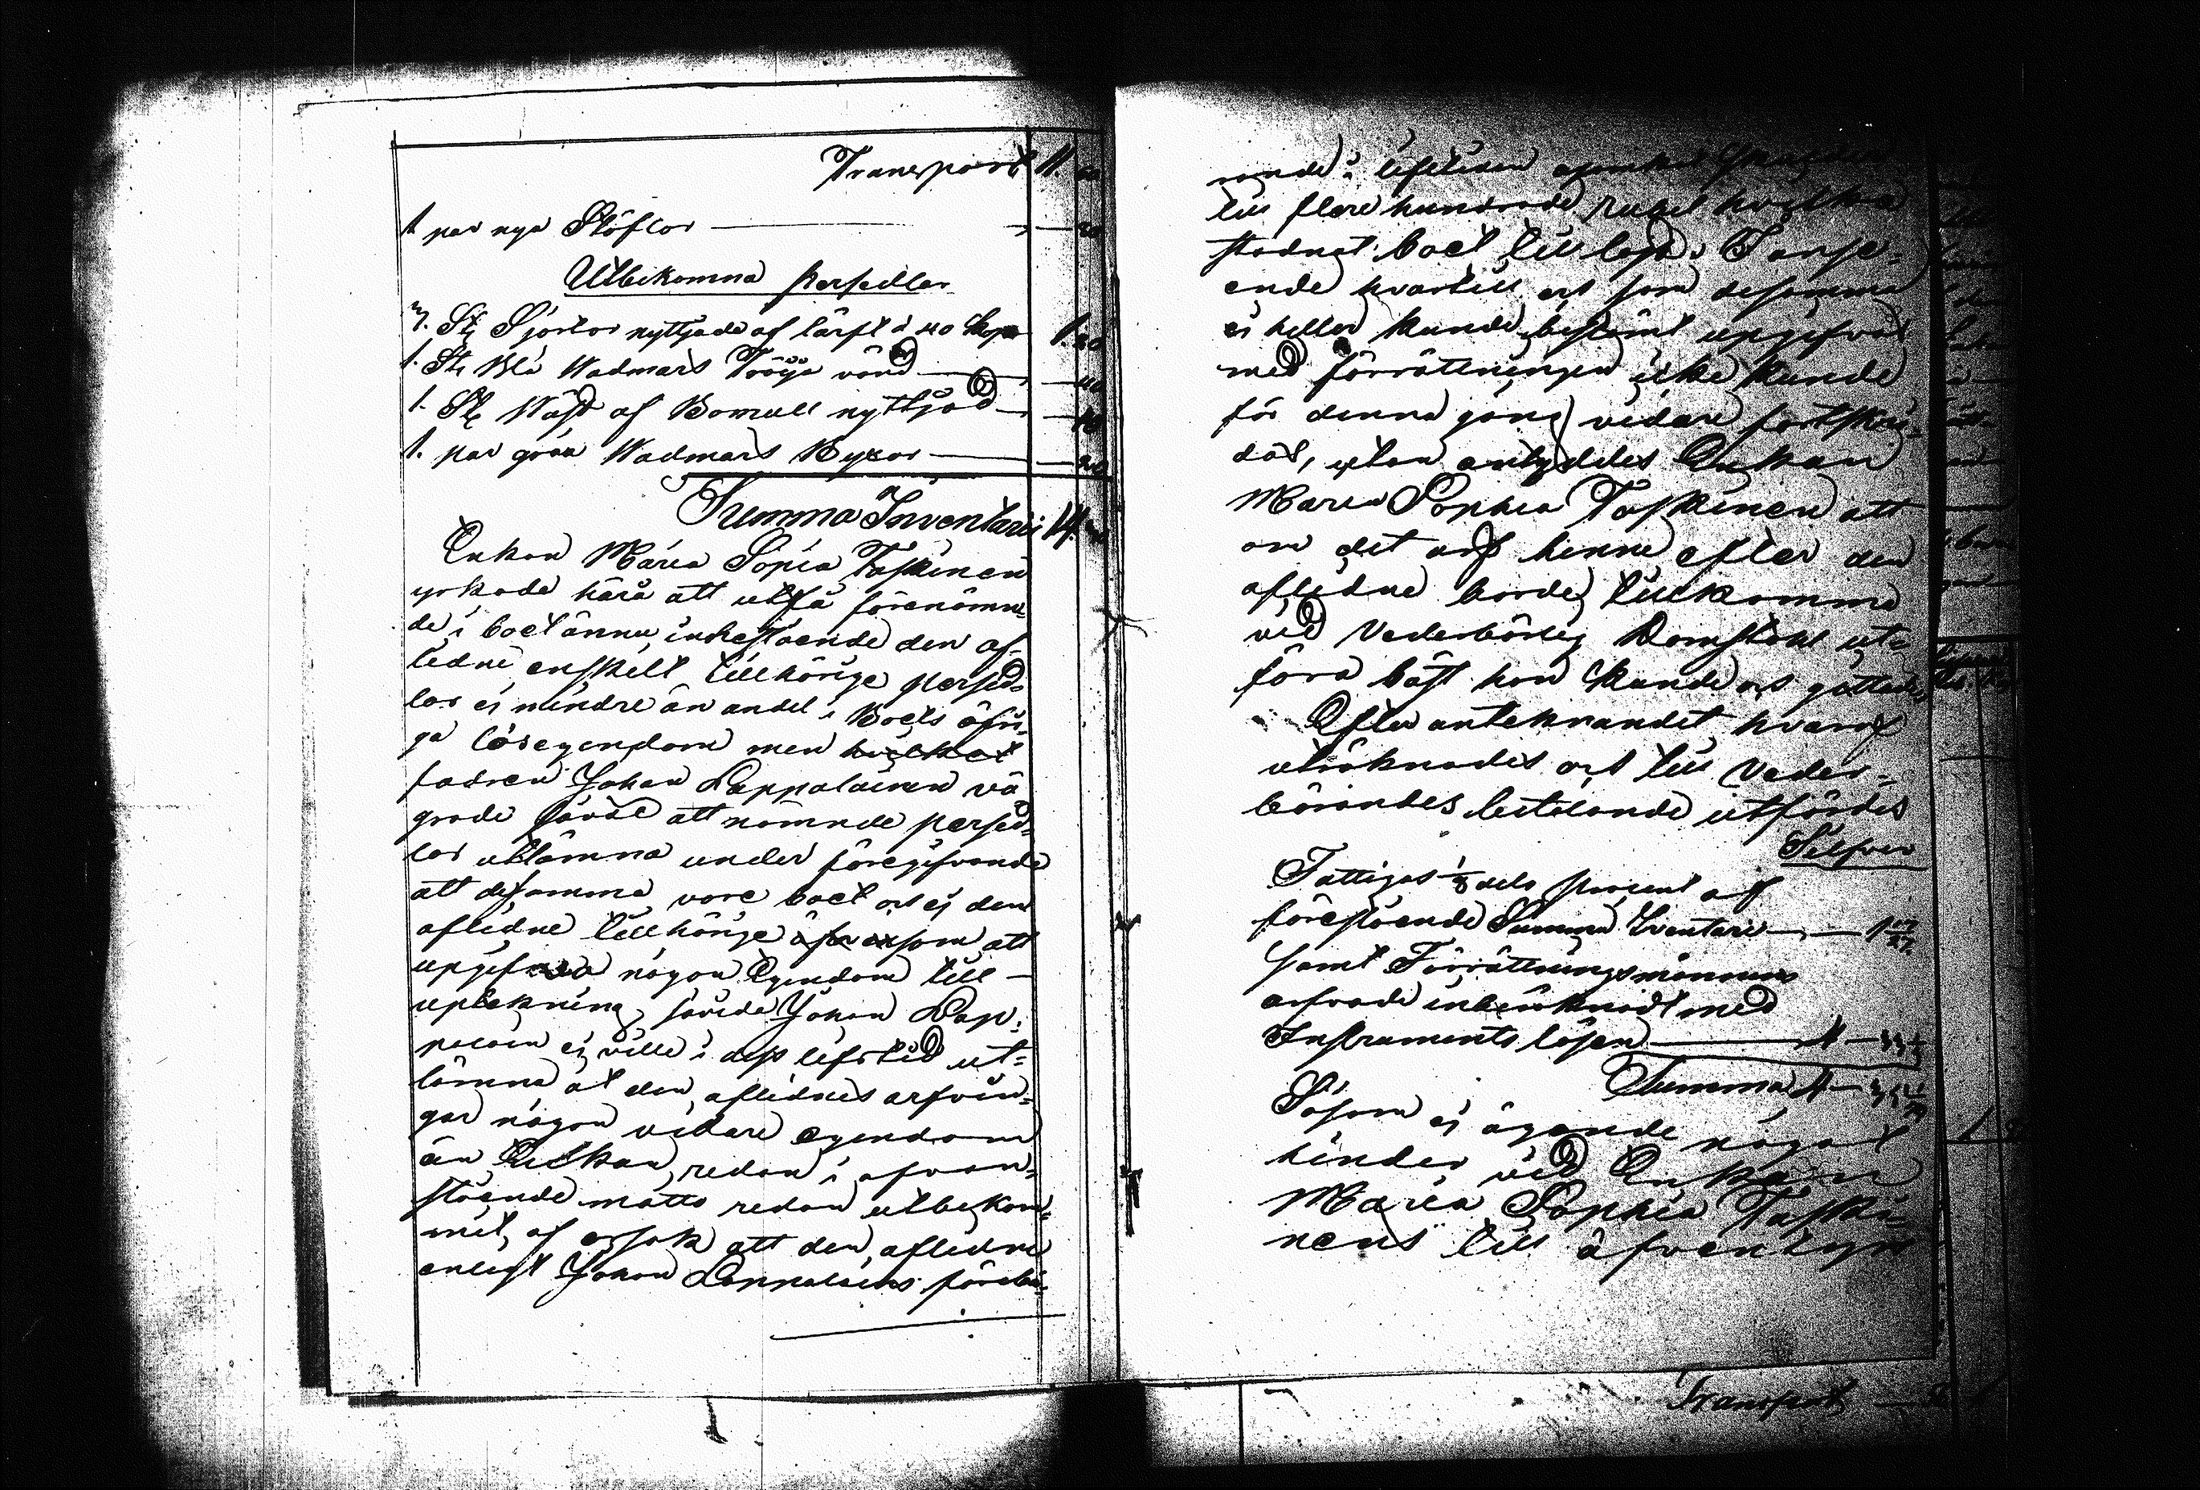 Transport 11. 60
1 par nya Stöflor — 20
Utbekomna Persedlar
3. St. Sjortor nyttjade af lärft à 40 kop 1. 20
1. St. Blå Wadmars Tröija vänd — 40
1. St. Wäst af Bomull nyttjad — 10
1. par gråa Wadmars Byxor —
Summa Inventarii 14.
Enkan Maria Sopia Taskinen
yrkade härå att utfå förenämn-
de i boet ännu innestående den af-
ledne enskilt tillhörige persed-
lar ej mindre än andel i Boets öfri-
ga lösegendom men hvilket
fadren Johan Lappalainen vä
grade såväl att nämnde persed-
lar utlämna under föregifvande
att desamma vore boet och ej den
afledne tillhörige som att
upgifva någon Egendom till
uptekning, såvida Johan Lap-
palain ej ville i dess lifstid ut-
lämna åt den aflednes arfvin-
gar någon vidare egendom
än Enkan redan i ofvan-
stående måtto redan utbekom-
mit, af orsak att den afledne
enligt Johan Lappalains förebä-
rande i lifstiden
till flere hundrade rubel hvilka
stadnat boet till last. I anse-
ende hvartill och som desamma
ej heller kunde bestämt upgifvas
med förrättningen icke kunde
för denna gång vidare fortskri-
das, utan antyddes Enkan
Maria Sophia Taskinen att
om det arf henne efter den
afledne borde tillkomma
vid Vederbörlig Domstol ut-
föra bäst hon kunde och gittade,
Efter anteknandet hvaraf
uträknades och till Veder-
börandes betalande utfördes
Silfver
Fattigas 1/8 dels procent af
förestående Summa Iventarii — 1
samt Förrättningsmännens
arfvode inberäknadt med
Instruments lösen — 4 — 33 1/3
Summa 4 —
Såsom ej ägande något
hinder vid Enkan
Maria Sophia Taski-
nens till äfventyrs
Transport —